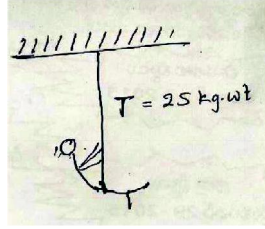 T = 25 kg.wt